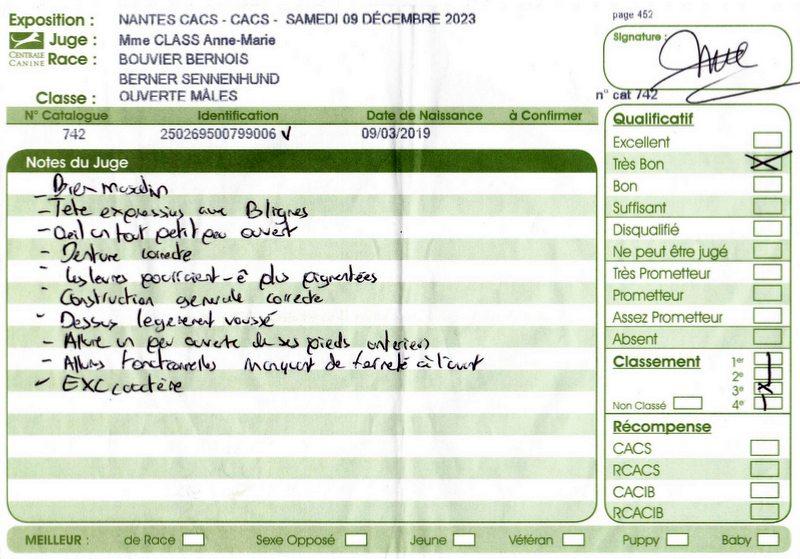 Exposition : NANTES CACS - CACS - SAMEDI 09 DÉCEMBRE 2023
page 452
CENTRALE CANINE
Juge : Mme CLASS Anne-Marie
Race : BOUVIER BERNOIS
BERNER SENNENHUND
Classe : OUVERTE MÂLES
Signature :
n° cat 742
N° Catalogue Identification Date de Naissance à Confirmer
742 250269500799006 ✓ 09/03/2019
Notes du Juge
- Bien masculin
- Tete expressive aux 3 lignes
- Oeil un tout petit peu ouvert
- Denture correcte
- Les levres pourraient-ê plus pigmentées
- Construction generale correcte
- Dessus legerement voussé
- Allure un peu ouverte de ses pieds anterieurs
- Allures fonctionnelles manquant de fermeté à l'avant
- EXC caractère
Qualificatif
Excellent
Très Bon X
Bon
Suffisant
Disqualifié
Ne peut être jugé
Très Prometteur
Prometteur
Assez Prometteur
Absent
Classement 1er
2e
3e
Non Classé 4e
Récompense
CACS
RCACS
CACIB
RCACIB
MEILLEUR : de Race Sexe Opposé Jeune Vétéran Puppy Baby